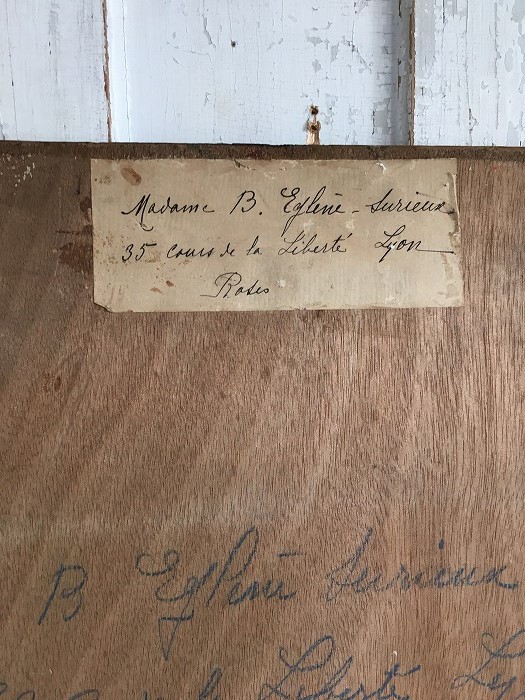 Madame B. Egline - Surieux
35 cours de la Liberté Lyon
Roses
B Egline Surieux
de la Liberté Ly